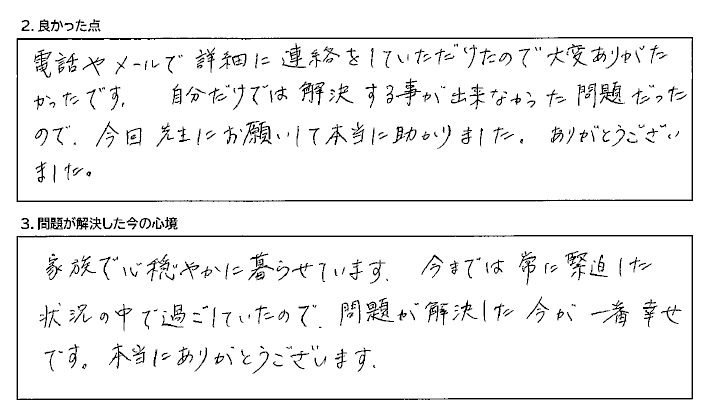 2. 良かった点
電話やメールで詳細に連絡をしていただけたので大変ありがた
かったです。 自分だけでは解決する事が出来なかった問題だった
ので、今回先生にお願いして本当に助かりました。 ありがとうござい
ました。
3. 問題が解決した今の心境
家族で心穏やかに暮らせています。 今までは常に緊迫した
状況の中で過ごしていたので、問題が解決した今が一番幸せ
です。本当にありがとうございます。